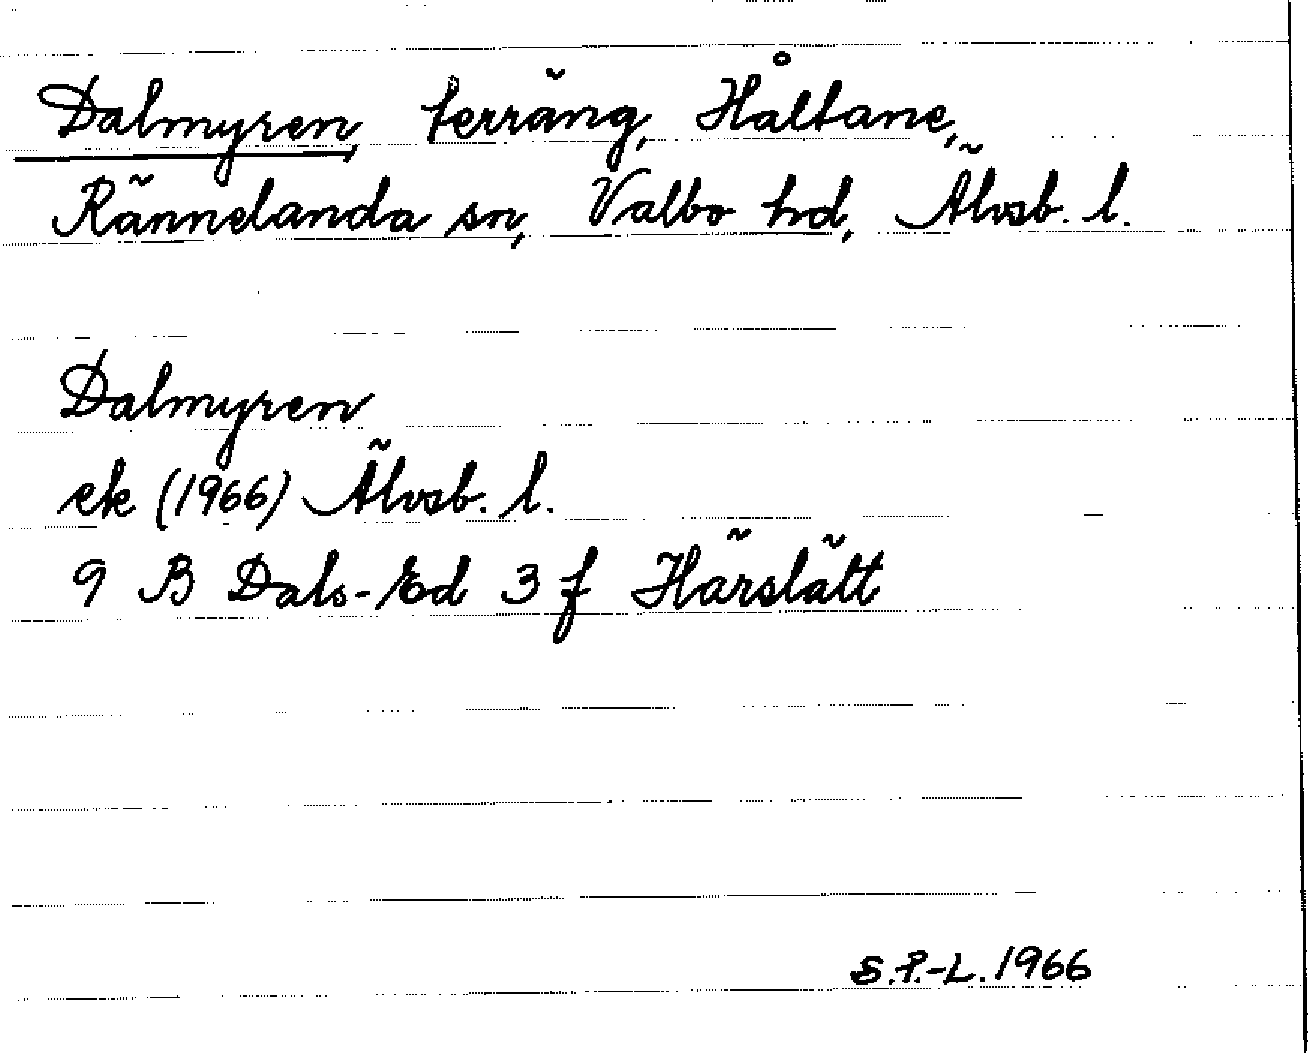 Dalmyren, terräng, Håltane,
Rännelanda sn, Valbo hd, Älvsb. l.
Dalmyren
ek (1966) Älvsb. l.
9 B Dals-Ed 3 f Härslätt
S.P.-L. 1966